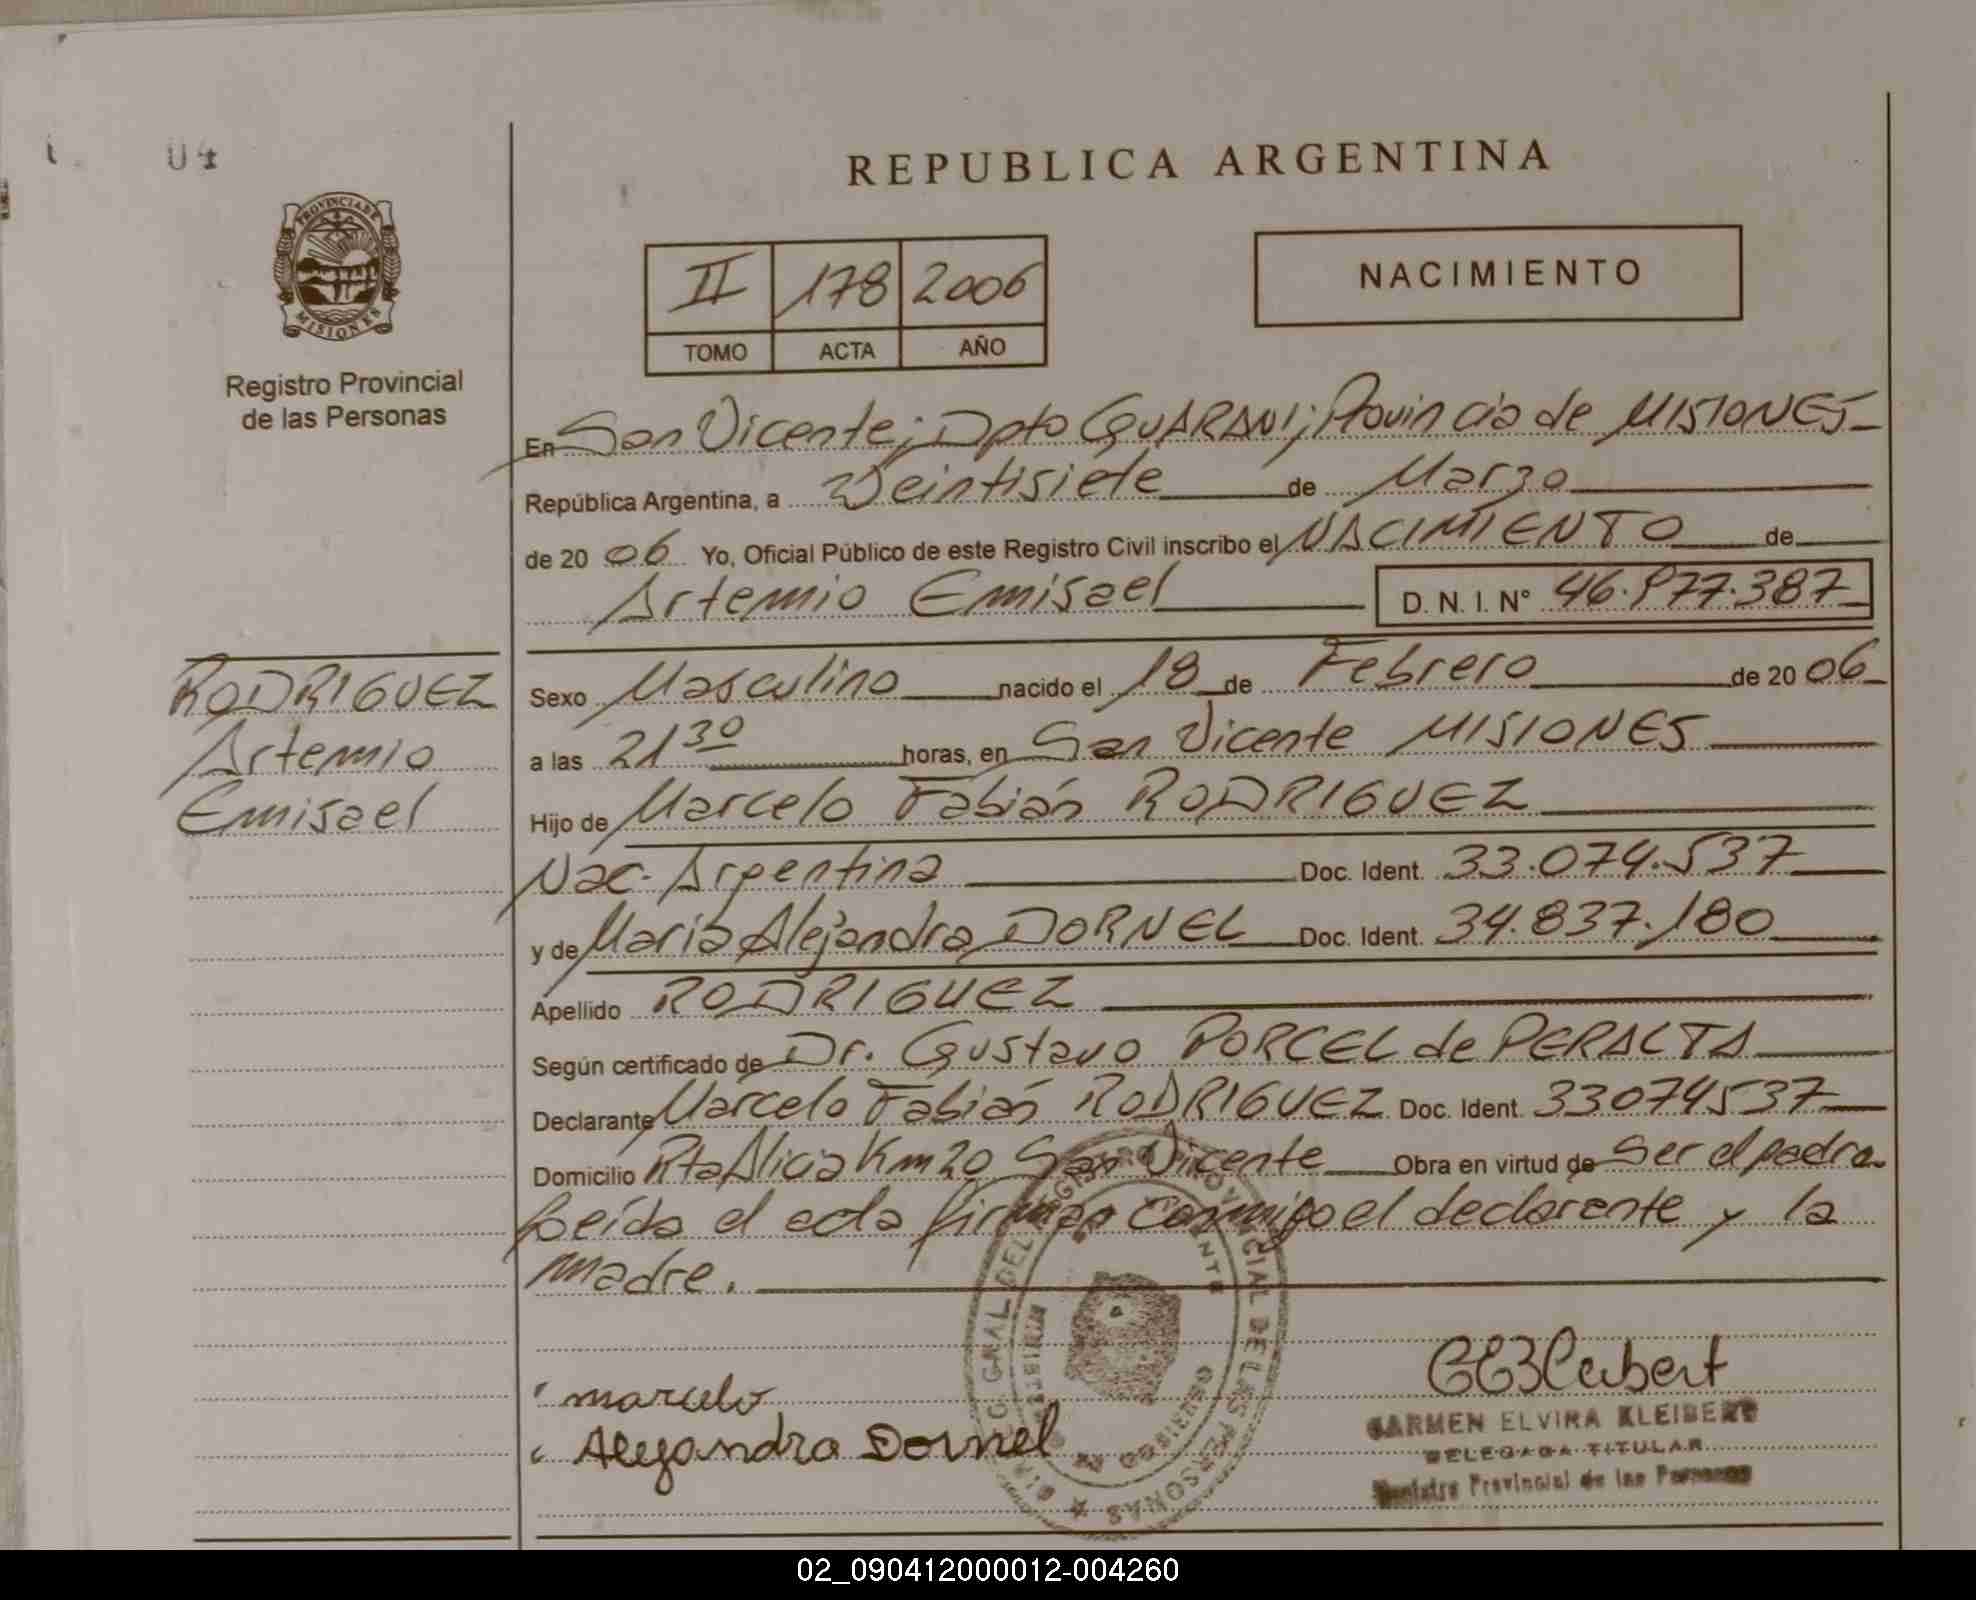 04
REPUBLICA ARGENTINA
PROVINCIA DE
MISIONES
Registro Provincial
de las Personas
II 178 2006
TOMO ACTA AÑO
NACIMIENTO
En San Vicente; Dpto GUARANI; Provincia de MISIONES
República Argentina, a Veintisiete de Marzo
de 20 06 Yo, Oficial Público de este Registro Civil inscribo el NACIMIENTO de
Artemio Emisael D. N. I. N° 46.977.387
RODRIGUEZ
Artemio
Emisael
Sexo Masculino nacido el 18 de Febrero de 20 06
a las 21 30 horas, en San Vicente MISIONES
Hijo de Marcelo Fabián RODRIGUEZ
Nac. Argentina Doc. Ident. 33.074.537
y de María Alejandra DORNEL Doc. Ident. 34.837.180
Apellido RODRIGUEZ
Según certificado de Dr. Gustavo PORCEL de PERALTA
Declarante Marcelo Fabián RODRIGUEZ Doc. Ident. 33074537
Domicilio Rta Alicia Km 20 San Vicente Obra en virtud de Ser el padre
Leída el acta firman conmigo el declarante y la
madre.
marcelo
Alejandra Dornel
CEKleibert
CARMEN ELVIRA KLEIBERT
DELEGADA TITULAR
Registro Provincial de las Personas
DIREC. GRAL. DEL REGISTRO PROVINCIAL DE LAS PERSONAS
02_090412000012-004260